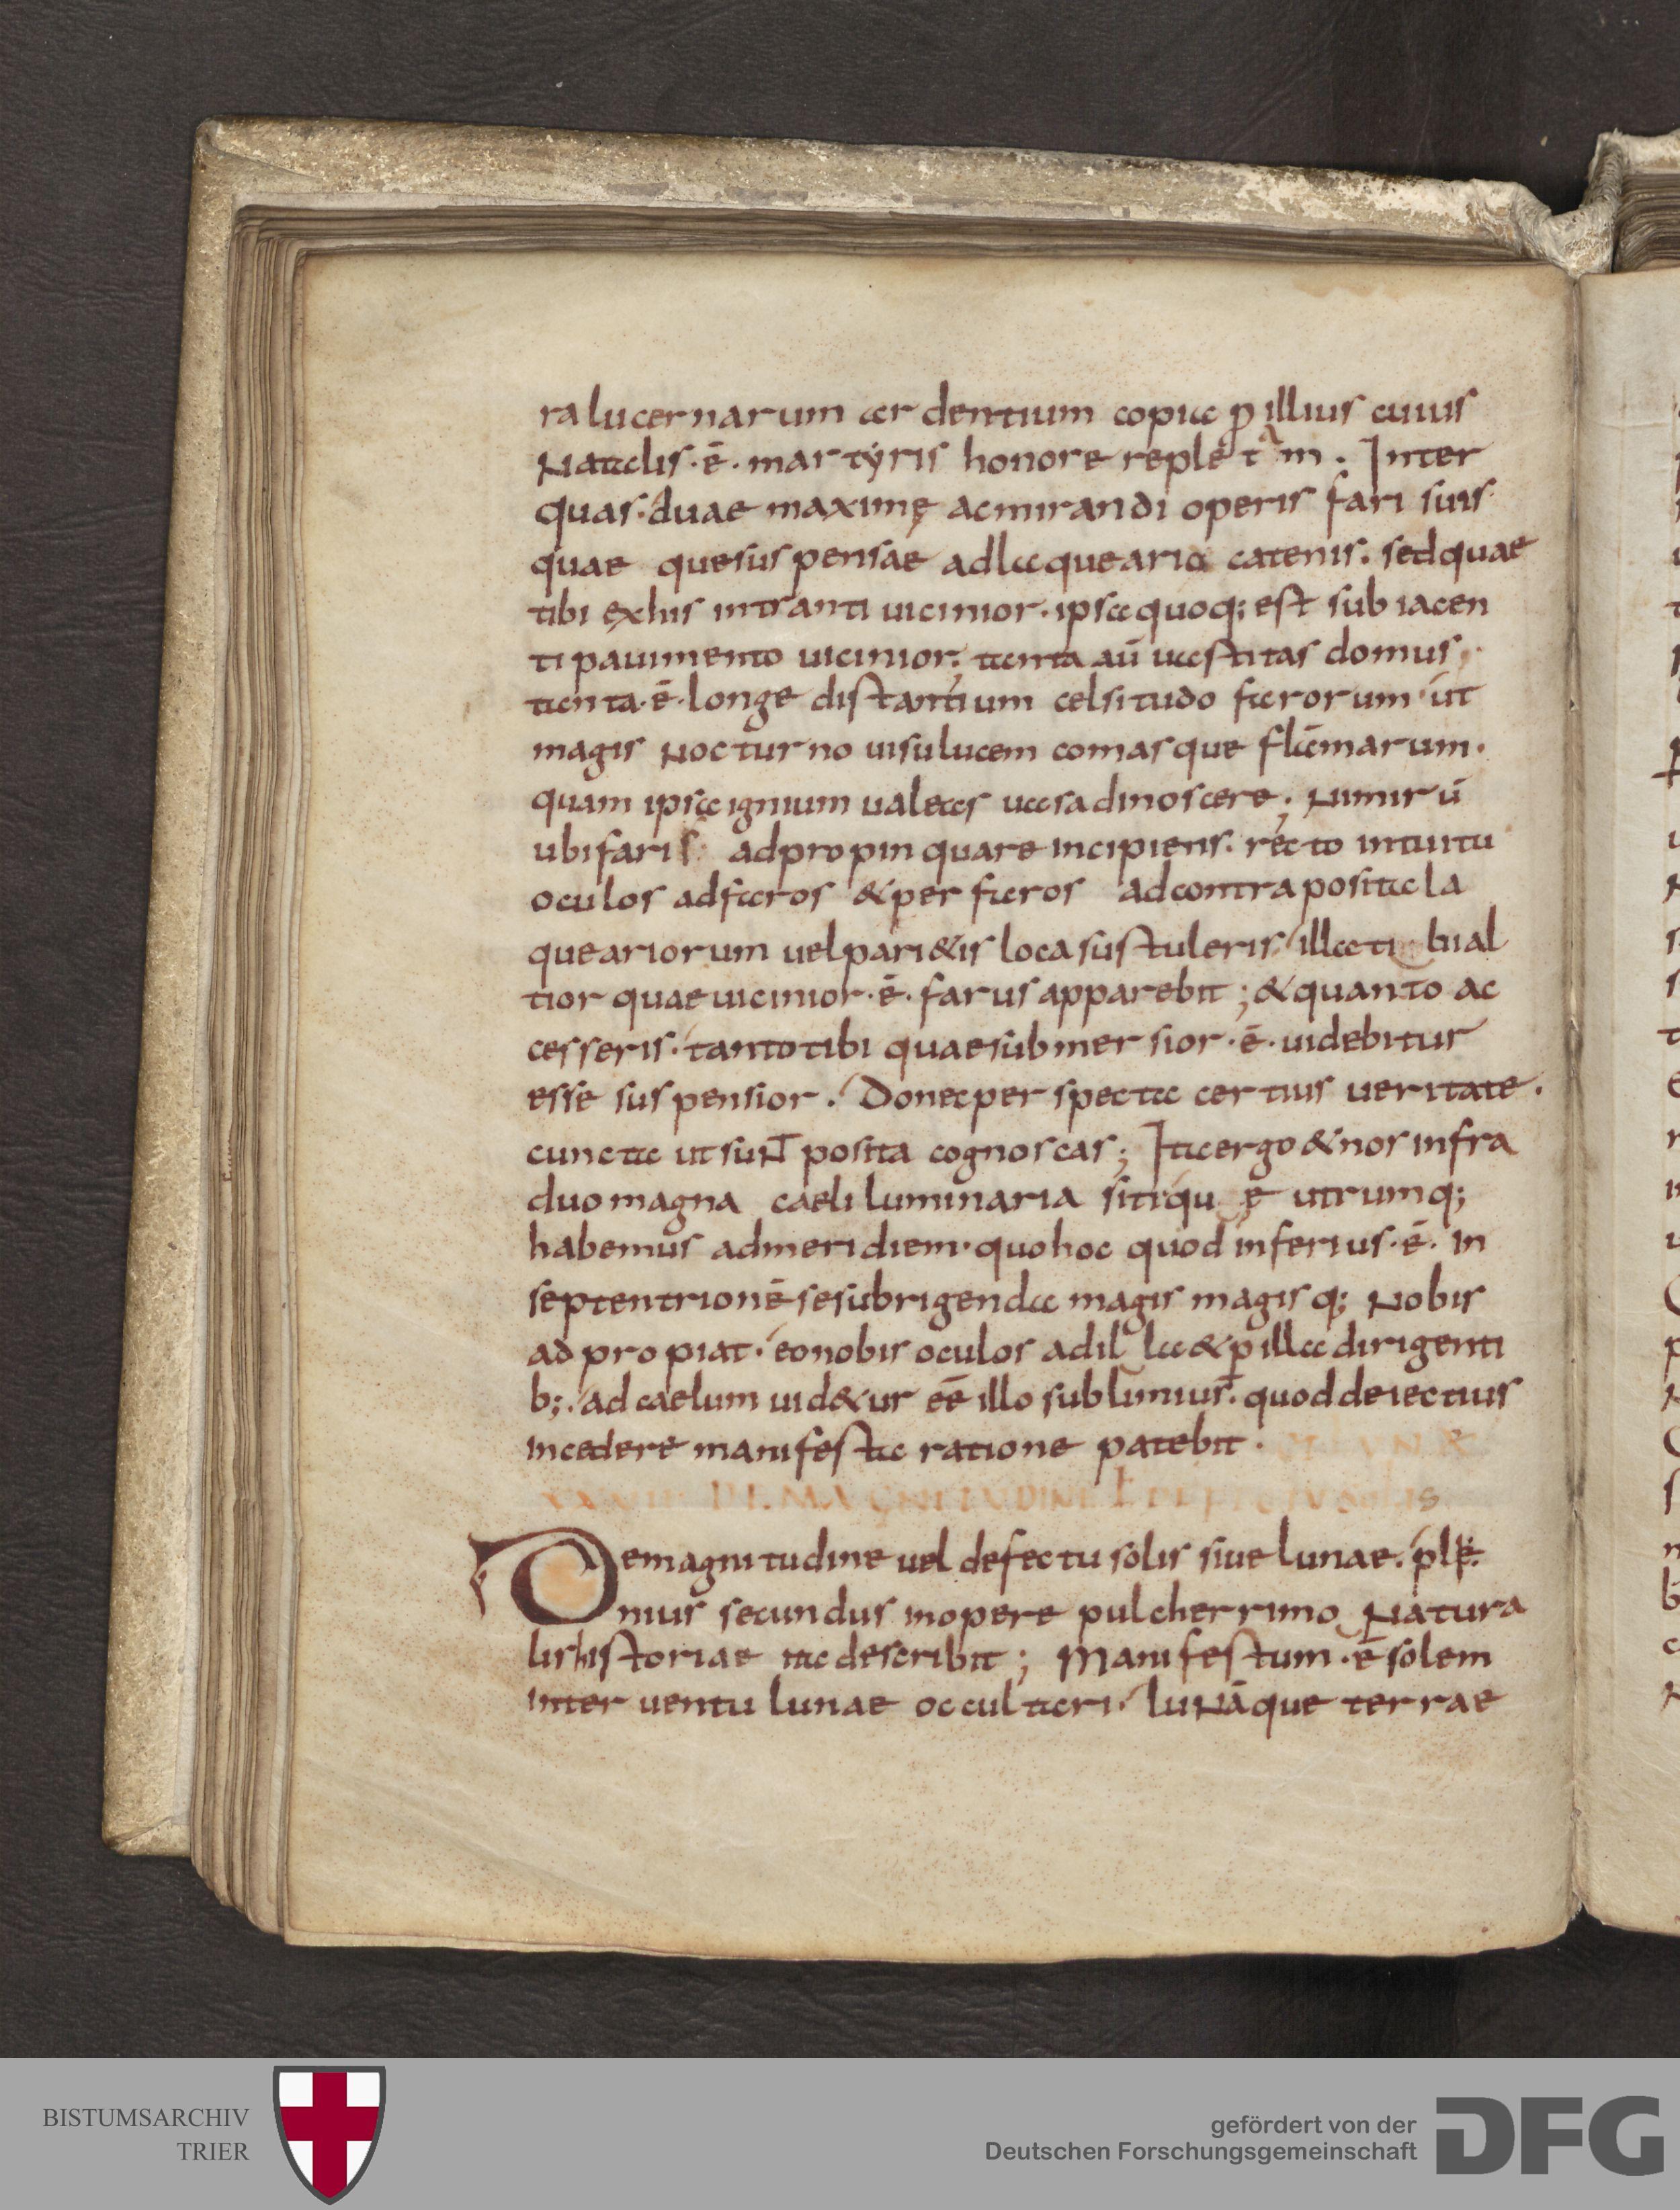 ra lucernarum ardentium copia p illius cuius
Natalis · ē · martyris honore repletam . Inter
quas · duae maximę ac mirandi operis fari suis
quae que suspensae ad laquearia catenis . sed quae
tibi ex his intranti uicinior · ipsa quoq; est sub iacen
ti pauimento uicinior ; tanta aū uastitas domus
tanta · ē · longe distantium celsitudo farorum · ut
magis Nocturno uisu lucem comasque flāmarum .
quam ipsa ignium ualeas uasa dinoscere ; Nimirū
ubi faris adpropinquare incipiens . recto intuitu
oculos ad faros & per faros ad contra posita la
queariorum uel pari&is loca sustuleris illa ti bi al
tior quae uicinior · ē · farus apparebit ; & quanto ac
cesseris · tanto tibi quae submersior · ē · uidebitur
esse suspensior . Donec perspecta certius ueritate .
cuncta ut suNT posita cognoscas ; Ita ergo & nos infra
duo magna caeli luminaria siti qu ę utrumq;
habemus ad meridiem · quo hoc quod inferius · ē · in
septentrionē se subrigenda magis magisq; Nobis
ad propiat · eo nobis oculos ad il la & p illa dirigenti
b; · ad caelum uid&ur eē illo sublimius . quod deiectius
incedere manifesta ratione patebit · ET LUNAE
XXVII DE MAGNITUDINE ł DEFECTV SOLIS
De magnitudine uel defectu solis siue lunae . plę
nius secundus in opere pulcherrimo Natura
lis historiae ita describit ; Manifestum · ē solem
inter uentu lunae occultari · luNāque terrae
BISTUMSARCHIV
TRIER
gefördert von der
Deutschen Forschungsgemeinschaft
DFG